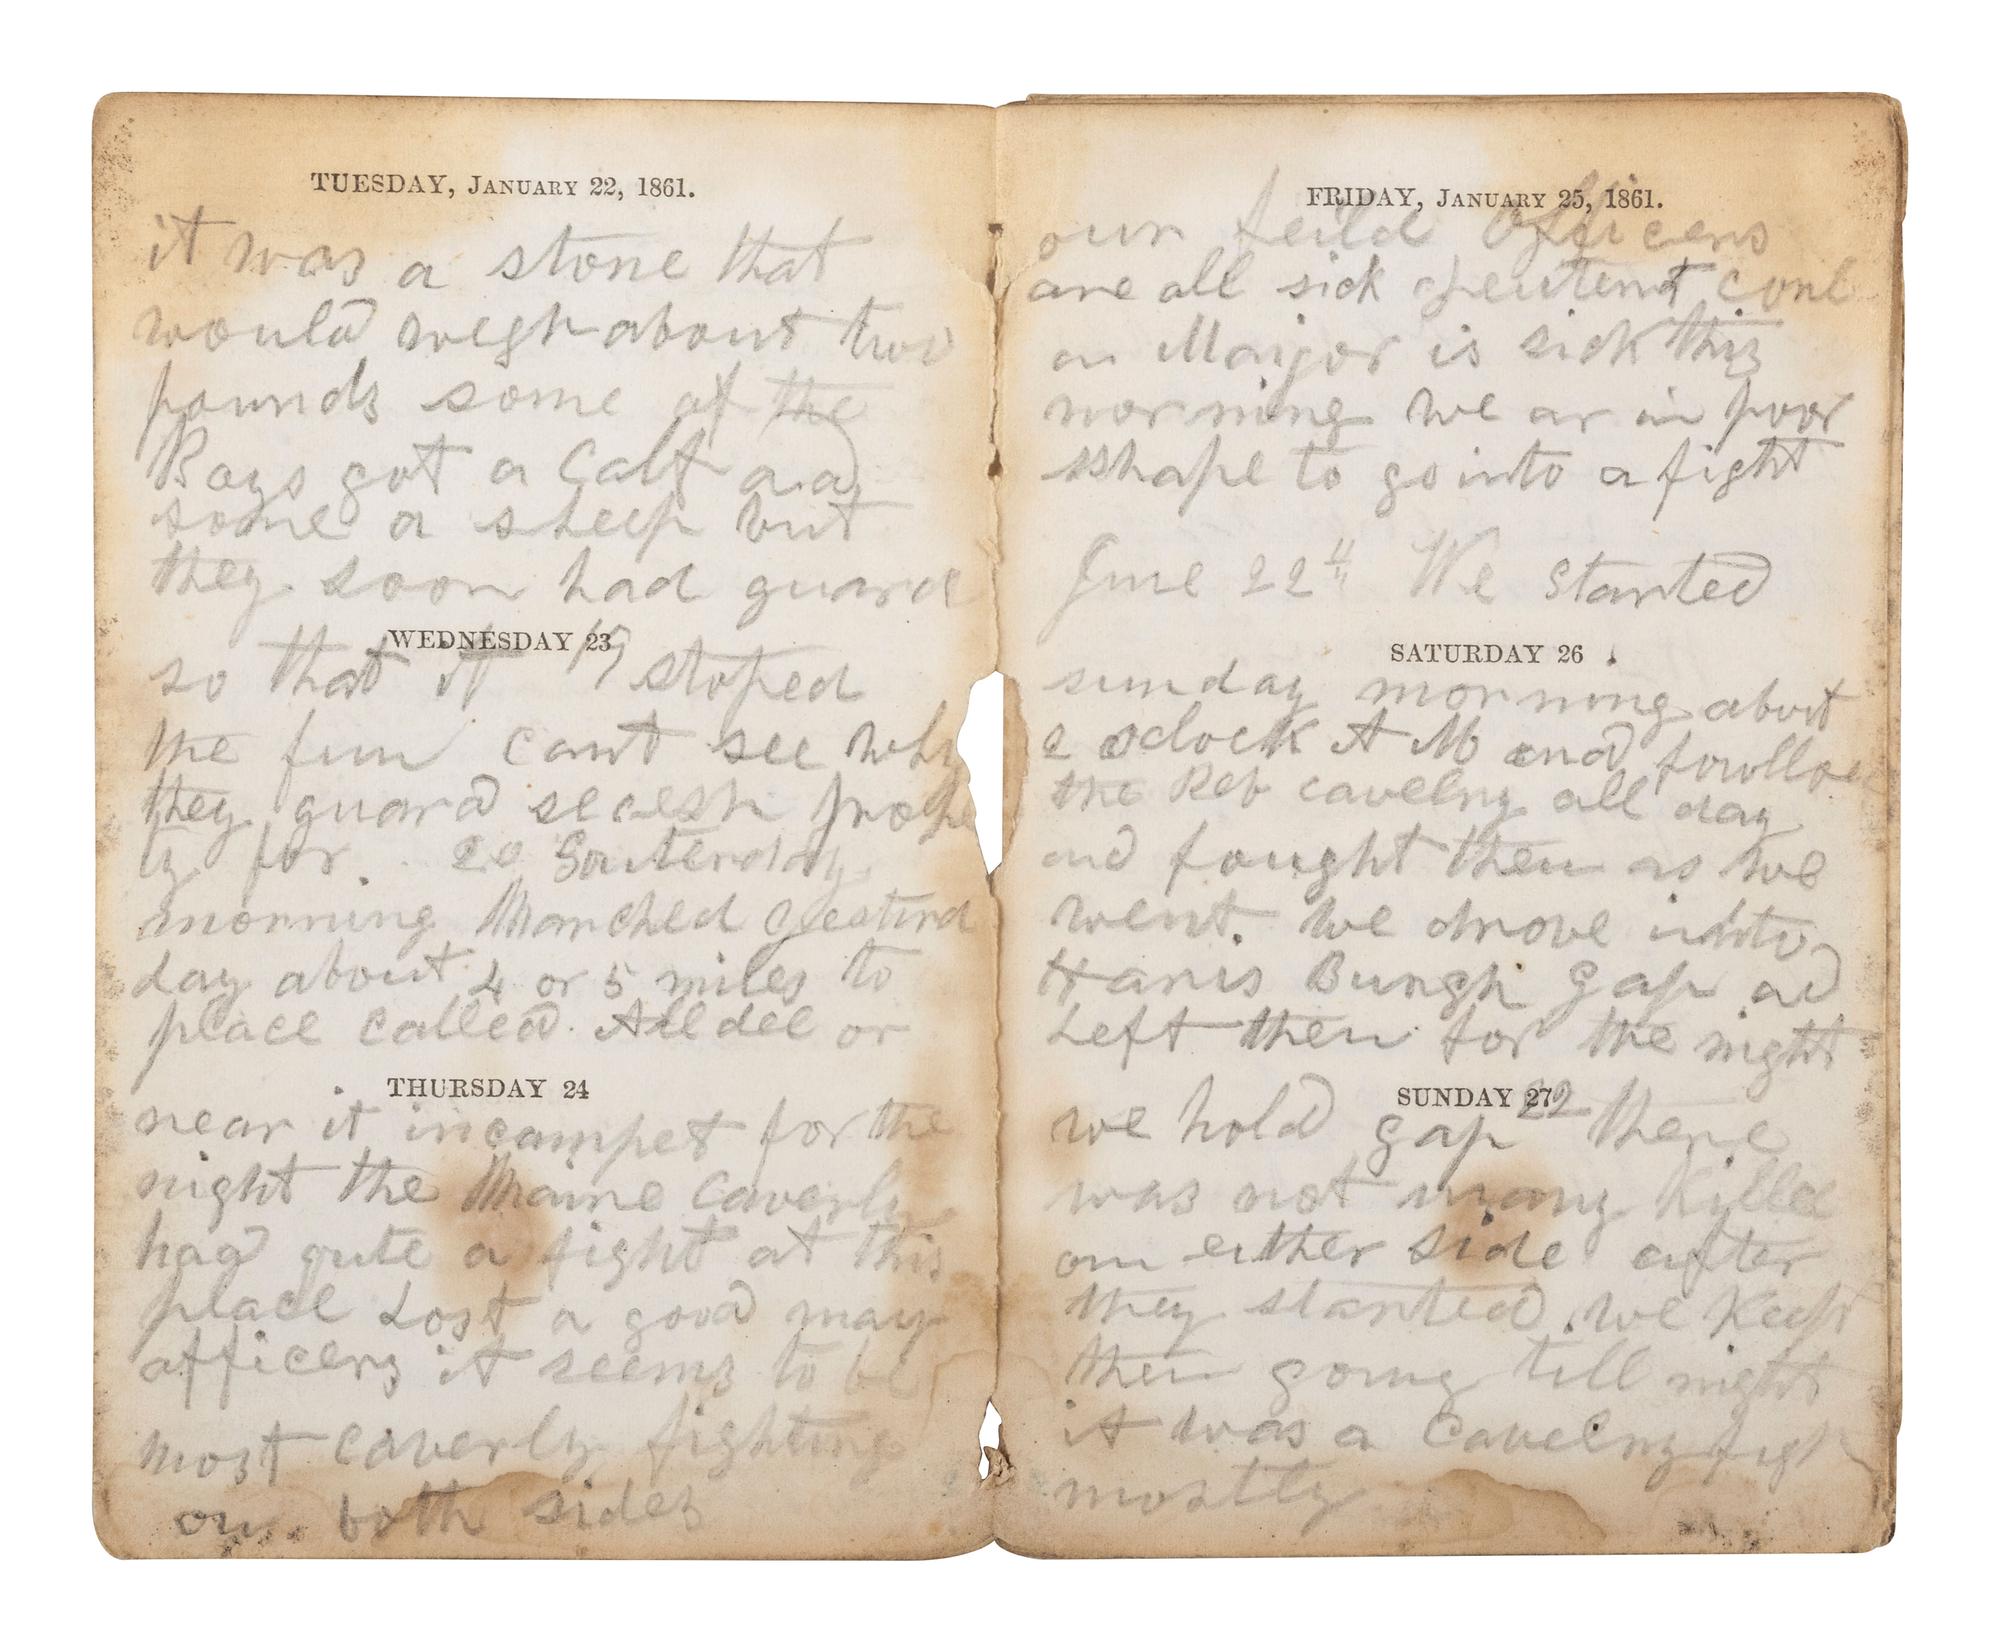 TUESDAY, JANUARY 22, 1861.
it was a stone that
would weigh about two
pounds some of the
Boys got a Calf and
some a sheep but
they soon had guard
WEDNESDAY 23
so that it 19 stoped
the fun cant see why
they guard secesh prope
ty for. 20 Sauterday
morning Marched yesterd
day about 4 or 5 miles to
place called Alldee or
THURSDAY 24
near it incampet for the
night the Maine Caverly
had qute a fight at this
place Lost a good may
officers it seems to be
most caverly fighting
on both sides
FRIDAY, JANUARY 25, 1861.
our feild Officers
are all sick Leutenat Conl
an Maijor is sick this
morning we ar in poor
sshape to go into a fight
June 22th We Started
SATURDAY 26
sunday morning about
2 oclock A M and fowlloe
the Reb cavelry all day
and fought them as we
went. we drove into
Harris Burgh Gap ad
Left then for the night
SUNDAY 27
we hold gap 22 there
was not many Killed
on either side after
they started we Kept
then going till night
it was a Cavelry figh
mostly